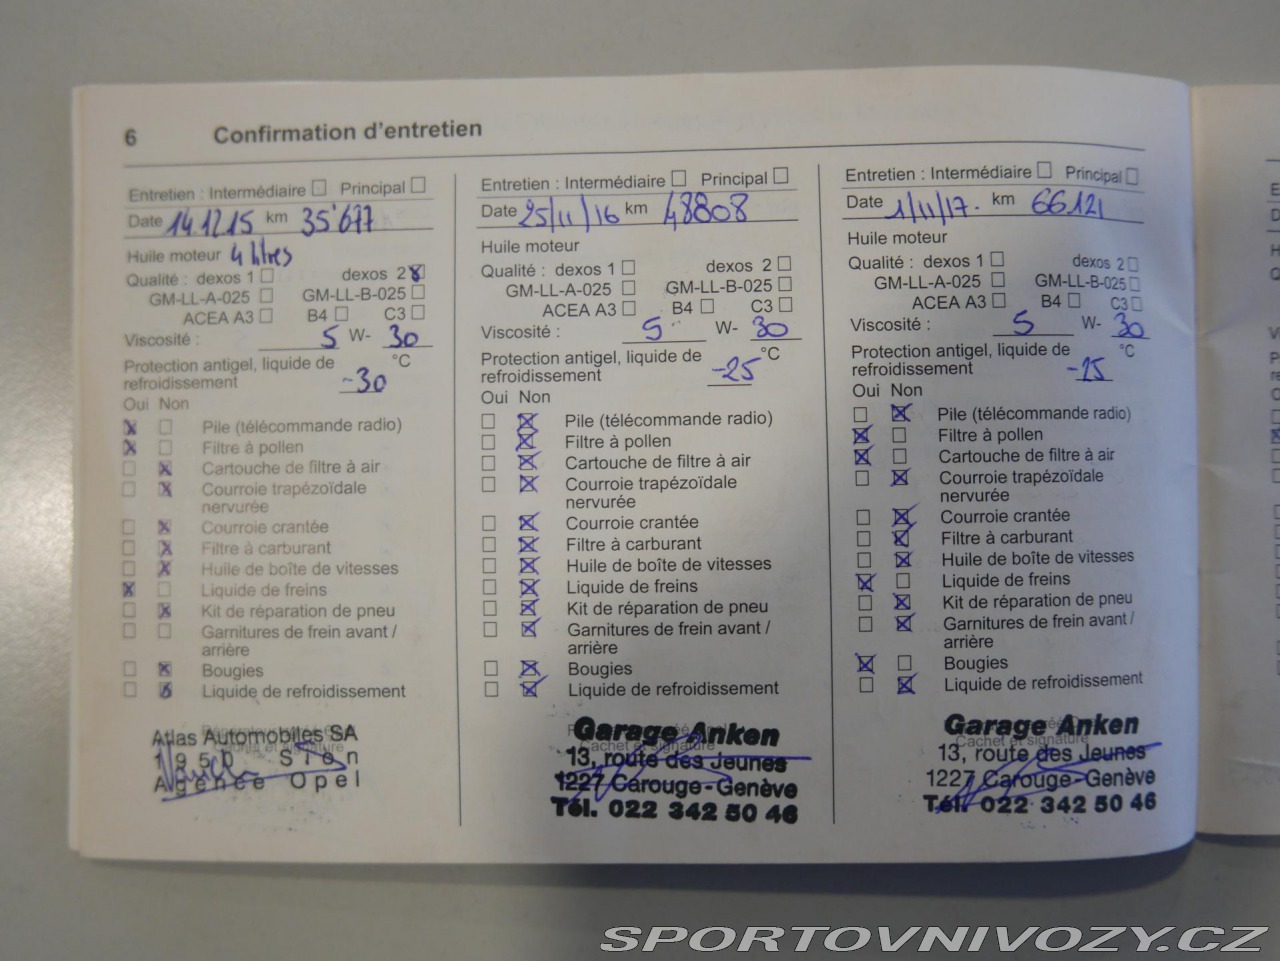 6 Confirmation d'entretien
Entretien : Intermédiaire ☐ Principal ☐
Date 14.12.15 km 35'677
Huile moteur 4 litres
Qualité : dexos 1 ☐ dexos 2 ☒
GM-LL-A-025 ☐ GM-LL-B-025 ☐
ACEA A3 ☐ B4 ☐ C3 ☐
Viscosité : 5 W- 30
Protection antigel, liquide de
refroidissement -30 °C
Oui Non
☒ ☐ Pile (télécommande radio)
☒ ☐ Filtre à pollen
☐ ☒ Cartouche de filtre à air
☐ ☒ Courroie trapézoïdale
nervurée
☐ ☒ Courroie crantée
☐ ☒ Filtre à carburant
☐ ☒ Huile de boîte de vitesses
☒ ☐ Liquide de freins
☐ ☒ Kit de réparation de pneu
☐ ☐ Garnitures de frein avant /
arrière
☐ ☒ Bougies
☐ ☒ Liquide de refroidissement
Atlas Automobiles SA
1950 Sion
Agence Opel
Entretien : Intermédiaire ☐ Principal ☐
Date 25/11/16 km 48808
Huile moteur
Qualité : dexos 1 ☐ dexos 2 ☐
GM-LL-A-025 ☐ GM-LL-B-025 ☐
ACEA A3 ☐ B4 ☐ C3 ☐
Viscosité : 5 W- 30
Protection antigel, liquide de
refroidissement -25 °C
Oui Non
☐ ☒ Pile (télécommande radio)
☐ ☒ Filtre à pollen
☐ ☒ Cartouche de filtre à air
☐ ☒ Courroie trapézoïdale
nervurée
☐ ☒ Courroie crantée
☐ ☒ Filtre à carburant
☐ ☒ Huile de boîte de vitesses
☐ ☒ Liquide de freins
☐ ☒ Kit de réparation de pneu
☐ ☒ Garnitures de frein avant /
arrière
☐ ☒ Bougies
☐ ☒ Liquide de refroidissement
Garage Anken
Cachet et signature
13, route des Jeunes
1227 Carouge-Genève
Tél. 022 342 50 46
Entretien : Intermédiaire ☐ Principal ☐
Date 1/11/17. km 66.121
Huile moteur
Qualité : dexos 1 ☐ dexos 2 ☐
GM-LL-A-025 ☐ GM-LL-B-025 ☐
ACEA A3 ☐ B4 ☐ C3 ☐
Viscosité : 5 W- 30
Protection antigel, liquide de
refroidissement -25 °C
Oui Non
☐ ☒ Pile (télécommande radio)
☒ ☐ Filtre à pollen
☒ ☐ Cartouche de filtre à air
☐ ☒ Courroie trapézoïdale
nervurée
☐ ☒ Courroie crantée
☐ ☒ Filtre à carburant
☐ ☒ Huile de boîte de vitesses
☒ ☐ Liquide de freins
☐ ☒ Kit de réparation de pneu
☐ ☒ Garnitures de frein avant /
arrière
☒ ☐ Bougies
☐ ☒ Liquide de refroidissement
Garage Anken
Cachet et signature
13, route des Jeunes
1227 Carouge-Genève
Tél. 022 342 50 46
SPORTOVNIVOZY.CZ